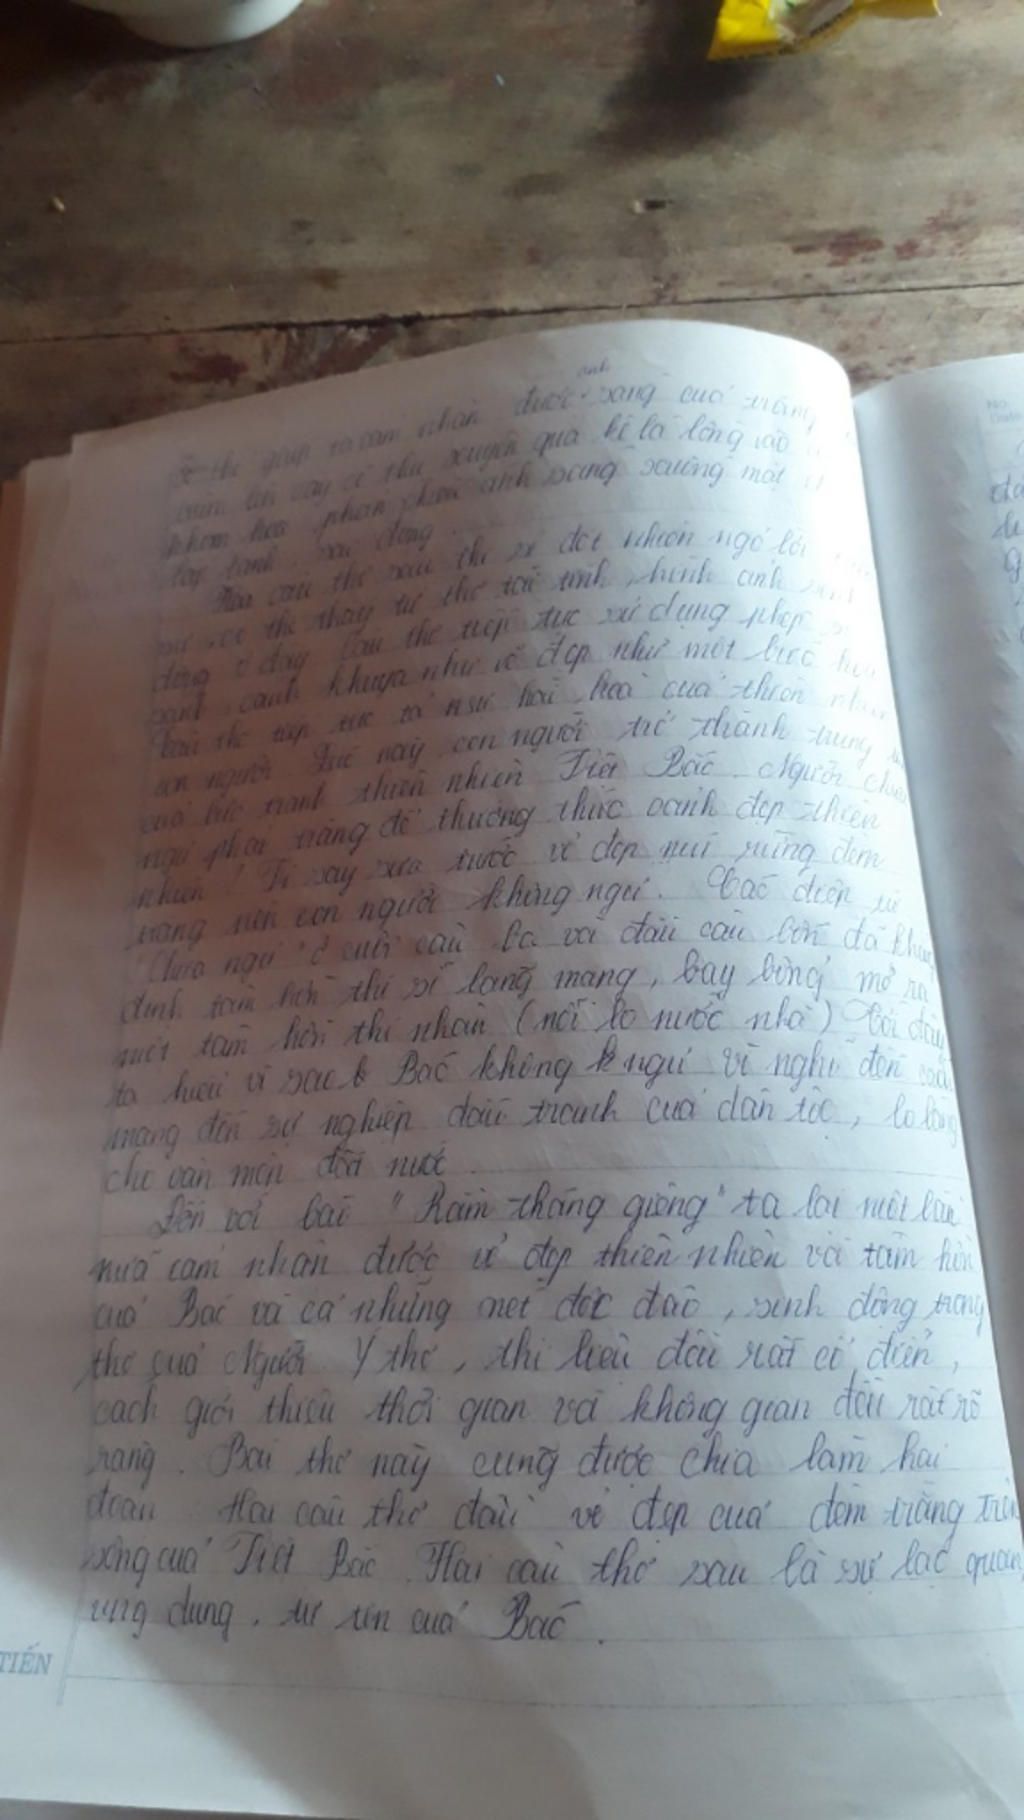 anh
thơ giúp ta cảm nhận được sáng của trăng
xuyên qua kẽ lá lồng vào
phản chiếu ánh sáng xuống mặt
lay lánh
Hai câu thơ sau thi sĩ đột nhiên ngỏ lời
có thể thấy từ thơ trữ tình, hình ảnh
động ở đây. Câu thơ tiếp tục sử dụng phép
sánh cảnh khuya như vẽ đẹp như một bức họa
Câu thơ tiếp tục tả sự hài hoà của thiên nhiên
con người. Lúc này con người trở thành trung
của bức tranh thiên nhiên Việt Bắc. Người chưa
ngủ phải chăng để thưởng thức cảnh đẹp thiên
nhiên? Vì say sưa trước vẻ đẹp núi rừng đêm
trăng nên con người không ngủ. Các điệp từ
"Chưa ngủ" ở cuối câu ba và đầu câu bốn đã khẳng
định tâm hồn thi sĩ lãng mạng, bay bổng mở ra
một tâm hồn thi nhân (nỗi lo nước nhà) Tới đây
ta hiểu vì sao Bác không ngủ vì nghĩ đến cách
mạng đến sự nghiệp đấu tranh của dân tộc, lo lắng
cho vận mện đất nước.
Đến với bài "Rằm tháng giêng" ta lại một lần
nữa cảm nhận được vẻ đẹp thiên nhiên và tâm hồn
của Bác và cả những nét độc đáo, sinh động trong
thơ của Người. Ý thơ, thi liệu đều rất cổ điển,
cách giới thiệu thời gian và không gian đều rất rõ
ràng. Bài thơ này cũng được chia làm hai
đoạn. Hai câu thơ đầu vẻ đẹp của đêm trăng trên
sông của Việt Bắc. Hai câu thơ sau là sự lạc quan,
ung dung, tự tin của Bác.
TIẾN